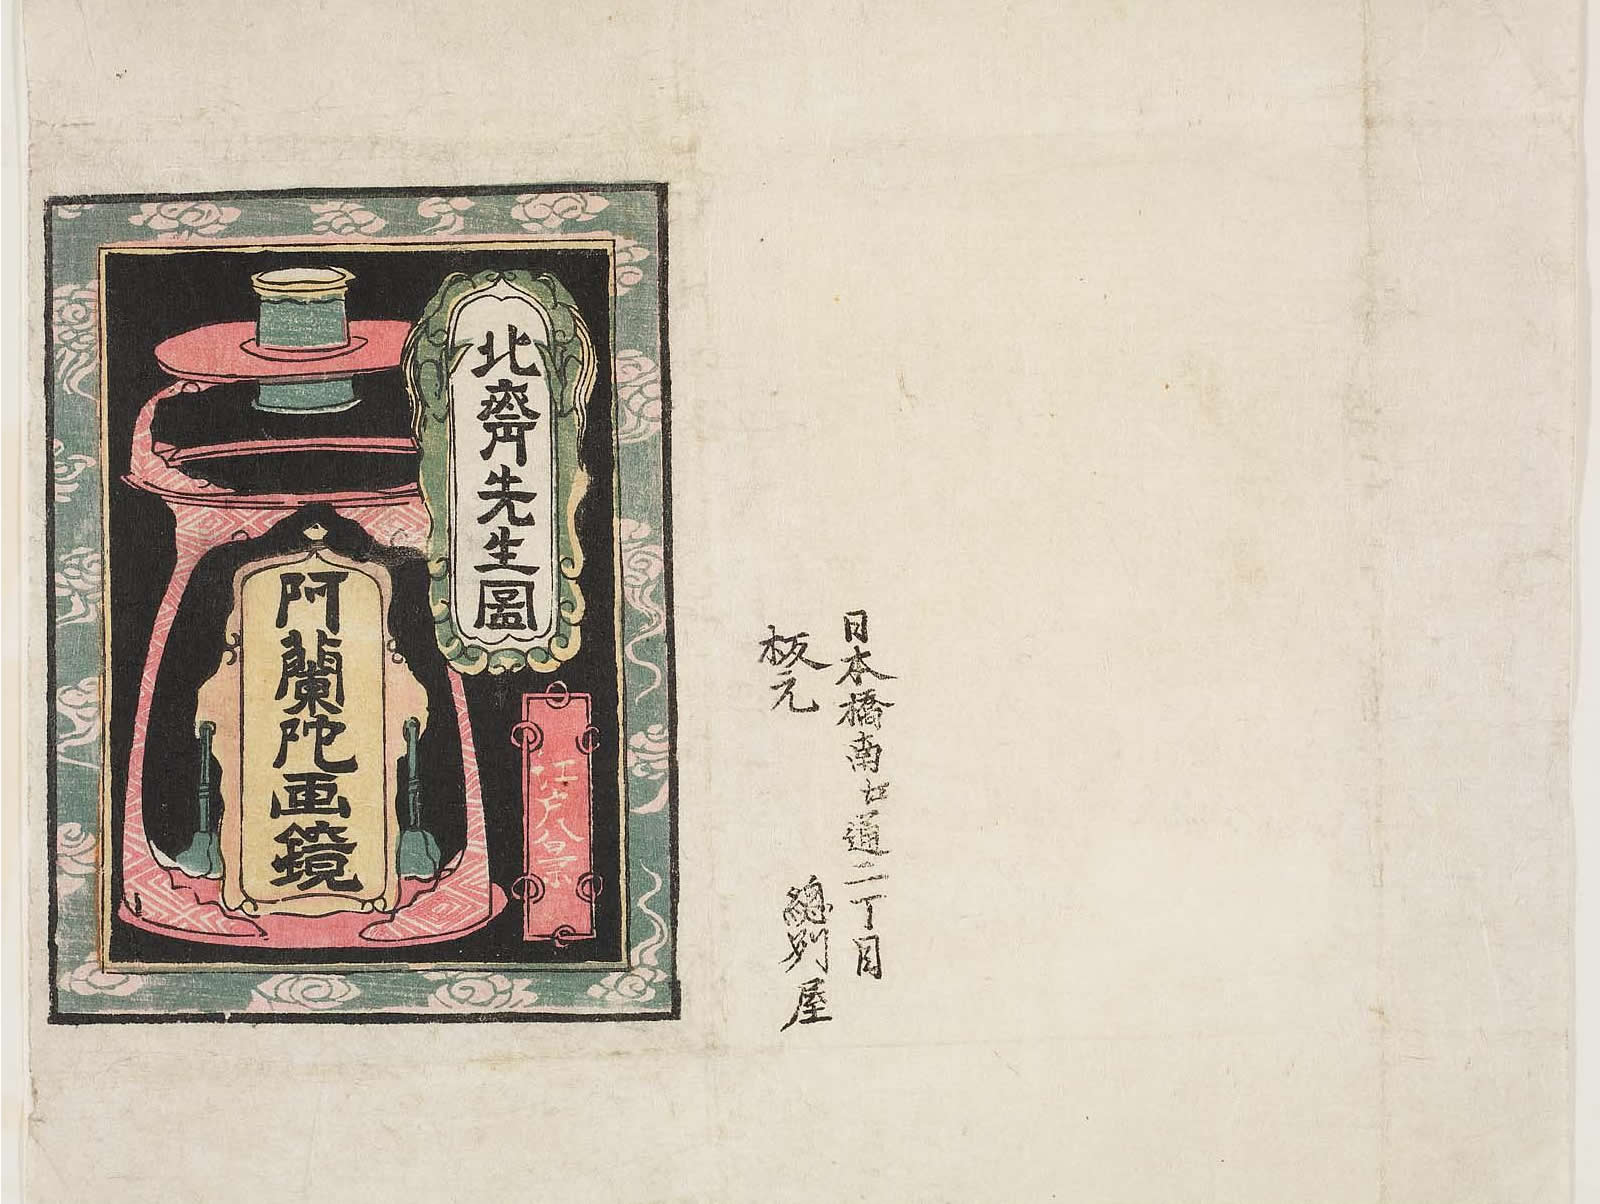 日本橋南廿通二丁目
板元 總州屋
北斎先生圖
江戸八景
阿蘭陀画鏡